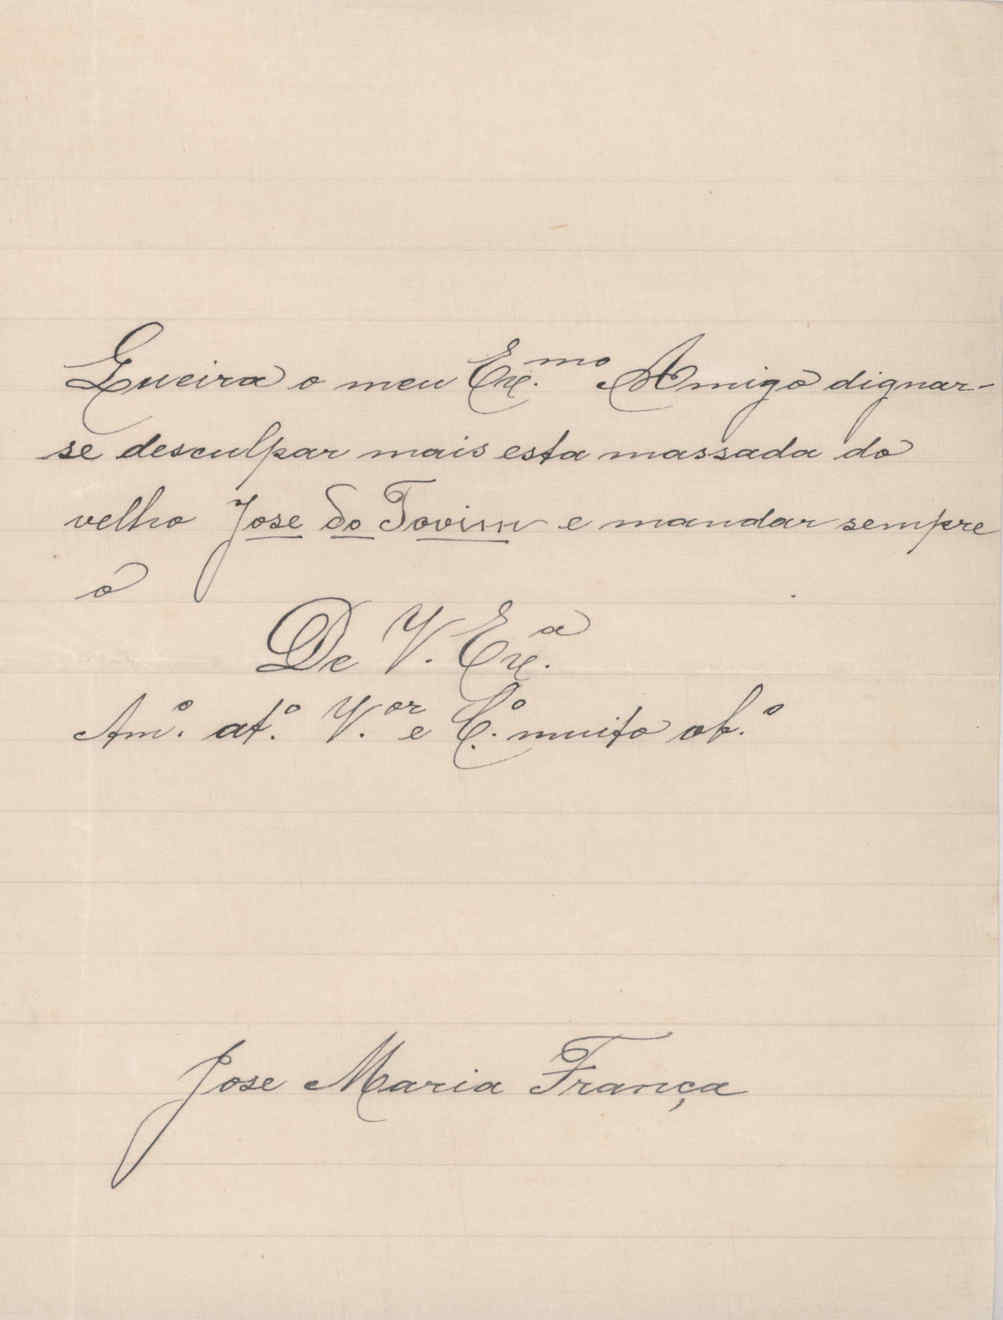 Queira o meu Ex.mo Amigo dignar-
se desculpar mais esta massada do
velho Jose do Tovim e mandar sempre
ó
De V. Ex.a
Am.o at.o V.or e C.o muito ob.o
Jose Maria França